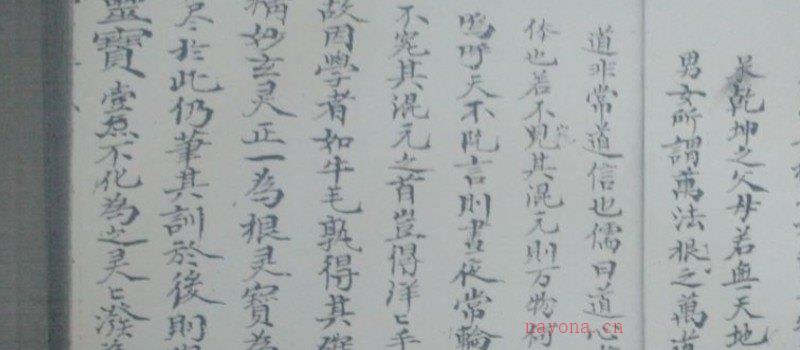 乾坤之父母若無天地
男女所謂萬法根之萬道
道非常道信也儒曰道心
体也若不見其混元則万物何
嗚呼天不既言則晝夜常輪
不究其混元之首豈得洋〻乎
故因學者如牛毛孰得其
稱妙玄灵正一為根灵寶為
尽於此仍筆其訓於後則
靈寶壹炁不化為之灵〻潑
nayona.cn